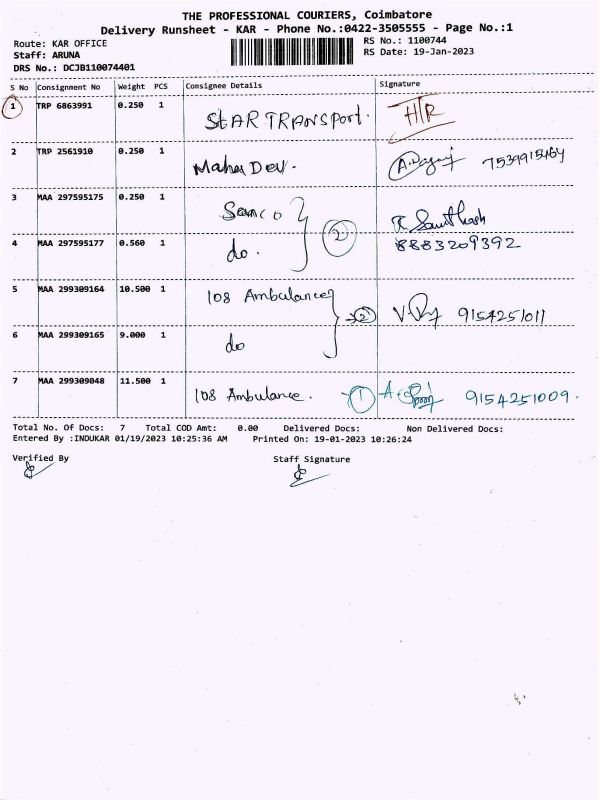 THE PROFESSIONAL COURIERS, Coimbatore
Delivery Runsheet - KAR - Phone No.:0422-3505555 - Page No.:1
Route: KAR OFFICE RS No.: 1100744
Staff: ARUNA RS Date: 19-Jan-2023
DRS No.: DCJB110074401
S No Consignment No Weight PCS Consignee Details Signature
1 TRP 6863991 0.250 1 StAR TRANSPort. H/R
2 TRP 2561910 0.250 1 Maha Dev. 7539915464
3 MAA 297595175 0.250 1 Semco
4 MAA 297595177 0.560 1 do. 2 8883209392
5 MAA 299309164 10.500 1 108 Ambulance 2 9154251011
6 MAA 299309165 9.000 1 do
7 MAA 299309048 11.500 1 108 Ambulance. 1 9154251009.
Total No. Of Docs: 7 Total COD Amt: 0.00 Delivered Docs: Non Delivered Docs:
Entered By :INDUKAR 01/19/2023 10:25:36 AM Printed On: 19-01-2023 10:26:24
Verified By Staff Signature